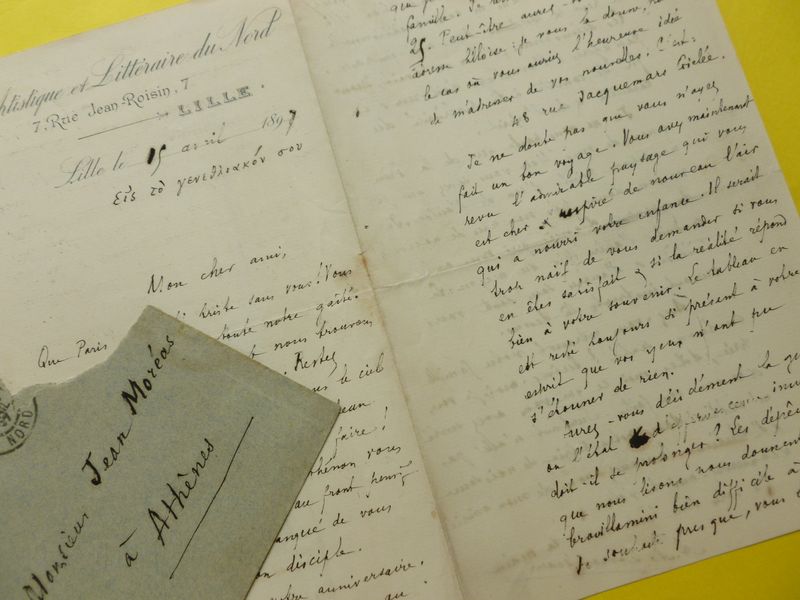 rtistique et Littéraire du Nord
7, Rue Jean-Roisin, 7
LILLE.
Lille le 15 avril 1897
εἰς τὸ γενεθλιακόν σου
Mon cher ami,
Que Paris triste sans vous ! Vous
toute notre gaîté.
nous trouvons
Restez
le ciel
faire !
vous
au front
manqué de vous
disciple.
anniversaire.
NORD
Monsieur Jean Moréas
à Athènes
famille. Je
25. Peut-être aurez
adresse lilloise : je vous la donne,
le cas où vous auriez l'heureuse idée
de m'adresser de vos nouvelles. C'est :
48 rue Jacquemars Giélée.
Je ne doute pas que vous n'ayez
fait un bon voyage. Vous avez maintenant
revu l'admirable paysage qui vous
est cher & respiré de nouveau l'air
qui a nourri votre enfance. Il serait
trop naïf de vous demander si vous
en êtes satisfait & si la réalité répond
bien à votre souvenir. Le tableau en
est resté toujours si présent à votre
esprit que vos yeux n'ont pu
s'étonner de rien.
Aurez-vous décidément la
ou l'état d'effervescence
doit-il se prolonger ? Les
que nous lisons nous donnent
brouillamini bien difficile à
Je souhaite presque, vous